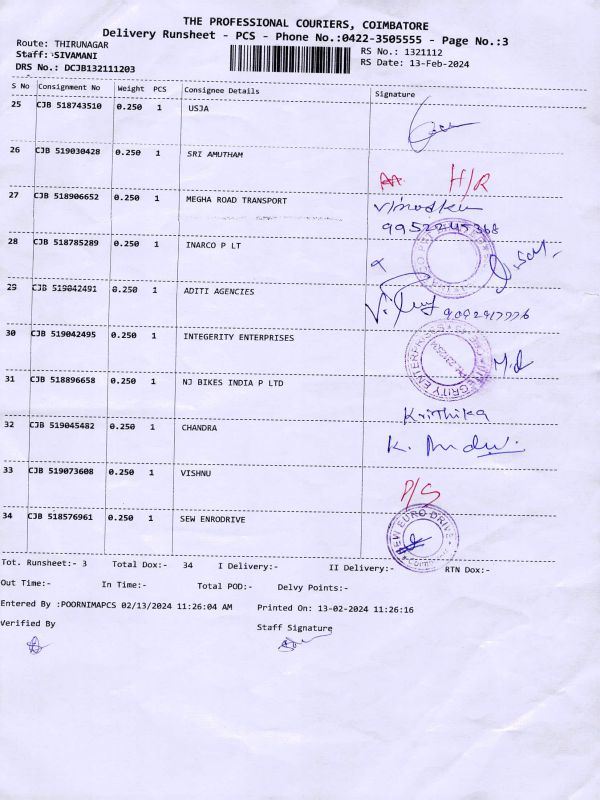 THE PROFESSIONAL COURIERS, COIMBATORE
Delivery Runsheet - PCS - Phone No.:0422-3505555 - Page No.:3
Route: THIRUNAGAR
RS No.: 1321112
Staff: SIVAMANI
RS Date: 13-Feb-2024
DRS No.: DCJB132111203
S No Consignment No Weight PCS Consignee Details Signature
25 CJB 518743510 0.250 1 USJA
26 CJB 519030428 0.250 1 SRI AMUTHAM
H/R
27 CJB 518906652 0.250 1 MEGHA ROAD TRANSPORT
9952245368
28 CJB 518785289 0.250 1 INARCO P LT
29 CJB 519042491 0.250 1 ADITI AGENCIES
30 CJB 519042495 0.250 1 INTEGERITY ENTERPRISES
INTEGRITY ENTERPRISES
31 CJB 518896658 0.250 1 NJ BIKES INDIA P LTD
Krithika
32 CJB 519045482 0.250 1 CHANDRA
33 CJB 519073608 0.250 1 VISHNU
P/S
34 CJB 518576961 0.250 1 SEW ENRODRIVE
SEW EURO DRIVE
Tot. Runsheet:- 3 Total Dox:- 34 I Delivery:- II Delivery:- RTN Dox:-
Out Time:- In Time:- Total POD:- Delvy Points:-
Entered By :POORNIMAPCS 02/13/2024 11:26:04 AM Printed On: 13-02-2024 11:26:16
Verified By Staff Signature